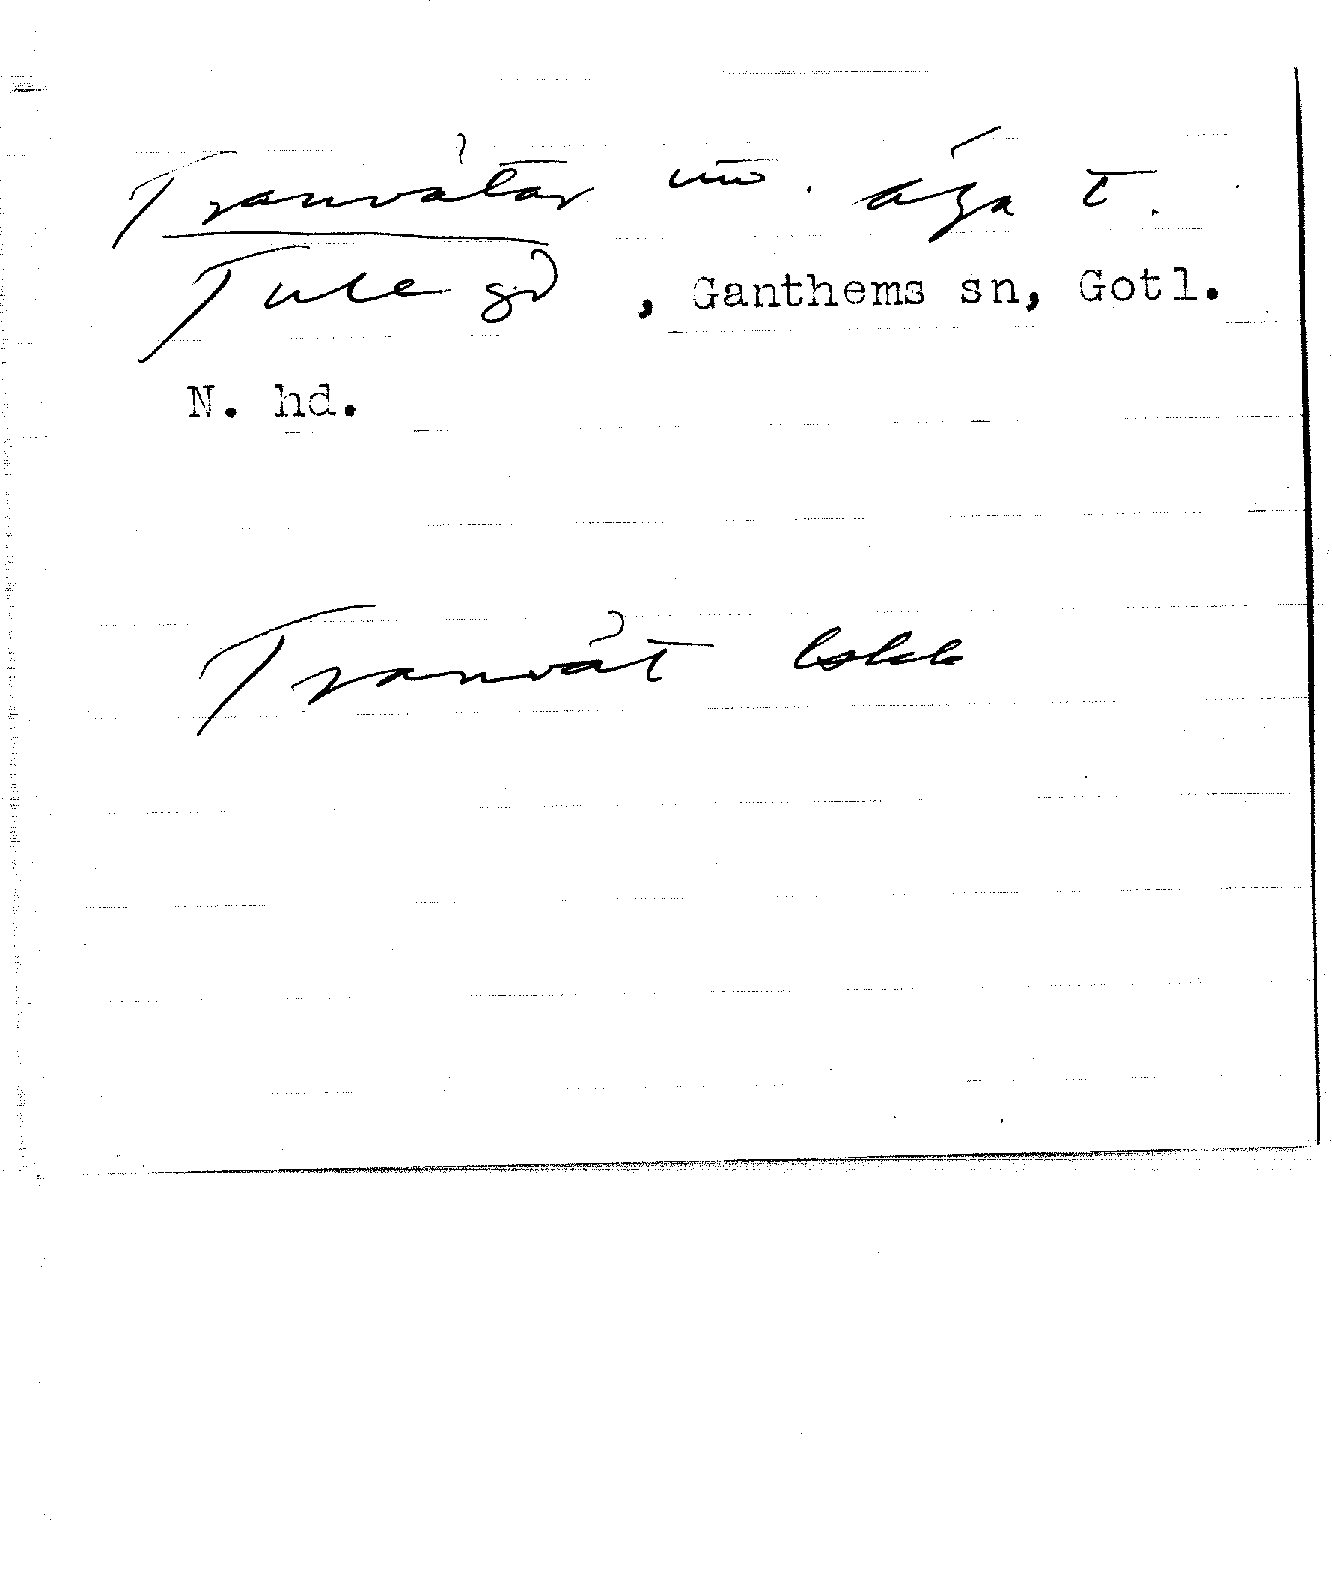 Tranvåtar äga t.
Tule gd, Ganthems sn, Gotl.
N. hd.
Tranvåt